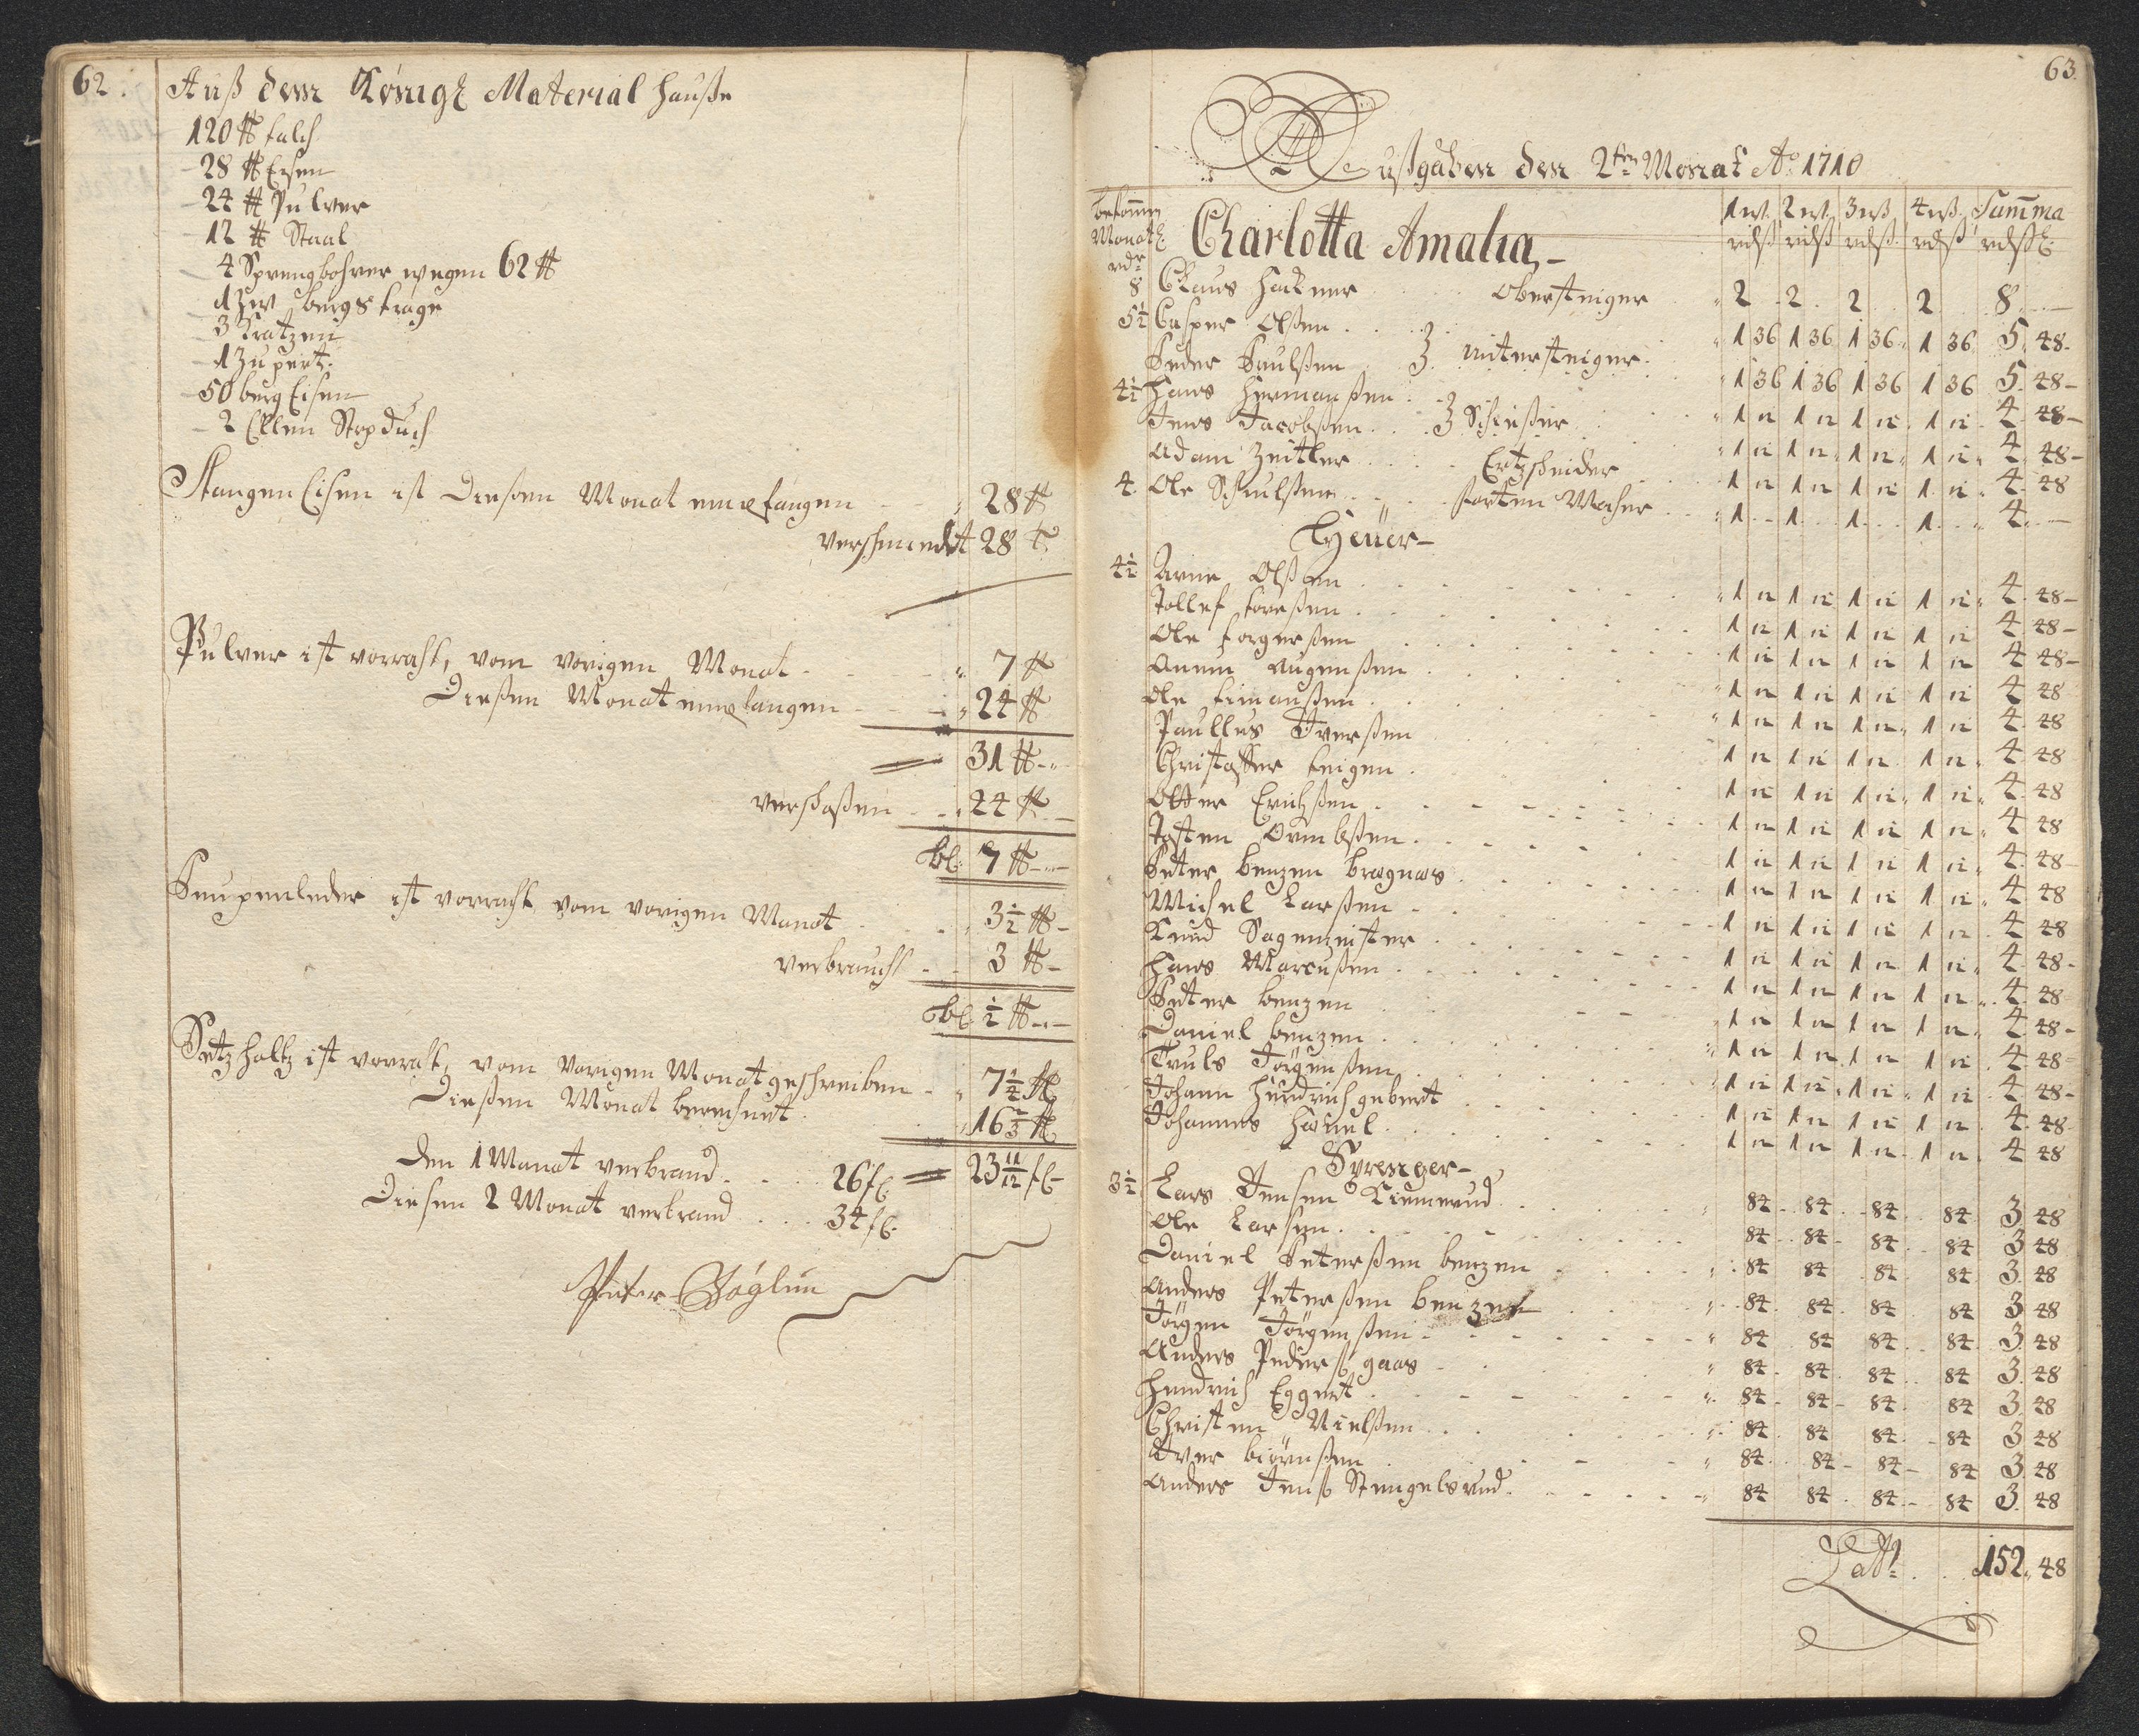 62.
Auß dem Königl Material hauße
120 ℔ talch
28 ℔ Eisen
24 ℔ Pulver
12 ℔ Staal
4 Sprengbohrer wegen 62 ℔
1 bergs trage
3 Kratzen
50 berg Eisen
2 Ellen
Stangen Eisen ist dießen Monat empfangen 28 ℔
verschmiedt 28 ℔
Pulver ist vorraht, vom vorigen Monat 7 ℔
Dießen Monat empfangen 24 ℔
31 ℔
verschoßen 24 ℔
bl: 7 ℔
Pumpenleder ist vorraht vom vorigen Monat 3½ ℔
verbraucht 3 ℔
bl: ½ ℔
Setzholtz ist vorraht, vom vorigen Monat geschreiben
Dießen Monat berechnet
Den 1 Monat verbrand 26 fl 23 11/12 fl
Diesen 2 Monat verbrand 34 fl
63.
Außgaben den 2ten Monat Ao 1710
bekomen Monatl: rdr
1 wß 2 wß 3 wß 4 wß Summa
rdß rdß rdß rdß rdßl
Charlotta Amalia
8 Claus Hackner Obersteiger 2 2 2 2 8
5½ Casper Olßen 1 36 1 36 1 36 1 36 5 48
Peder Paulßen untersteiger 1 36 1 36 1 36 1 36 5 48
4½ Hans Hermanßen 1 12 1 12 1 12 1 12 4 48
Jens Jacobßen Schießer 1 12 1 12 1 12 1 12 4 48
Adam Zeitler Ertzscheider 1 12 1 12 1 12 1 12 4 48
4 Ole 1 1 1 1 4
Hyeüer
4½ Arne Olßen 1 12 1 12 1 12 1 12 4 48
Tollef Toreßen 1 12 1 12 1 12 1 12 4 48
Ole Torgerßen 1 12 1 12 1 12 1 12 4 48
1 12 1 12 1 12 1 12 4 48
Ole 1 12 1 12 1 12 1 12 4 48
Paullus Iverßen 1 12 1 12 1 12 1 12 4 48
Christoffer 1 12 1 12 1 12 1 12 4 48
Otter Erichßen 1 12 1 12 1 12 1 12 4 48
Josten 1 12 1 12 1 12 1 12 4 48
Peter benzen bragnas 1 12 1 12 1 12 1 12 4 48
Michel Larßen 1 12 1 12 1 12 1 12 4 48
Knud Sagmeister 1 12 1 12 1 12 1 12 4 48
Hans Marcußen 1 12 1 12 1 12 1 12 4 48
Peter benzen 1 12 1 12 1 12 1 12 4 48
Daniel benzen 1 12 1 12 1 12 1 12 4 48
Truls Jörgenßen 1 12 1 12 1 12 1 12 4 48
Johann Hendrich gebert 1 12 1 12 1 12 1 12 4 48
Johannes 1 12 1 12 1 12 1 12 4 48
Sprenger
3½ Lars Jensen 84 84 84 84 3 48
Ole Larsen 84 84 84 84 3 48
Daniel Peterßen benzen 84 84 84 84 3 48
Anders Peterßen benzen 84 84 84 84 3 48
Jörgen Jörgenßen 84 84 84 84 3 48
Anders Pederß gaas 84 84 84 84 3 48
Hendrich Eggert 84 84 84 84 3 48
Christen Nielßen 84 84 84 84 3 48
Iver biörnßen 84 84 84 84 3 48
Anders Jenß Stengelsrud 84 84 84 84 3 48
Latt 152 48